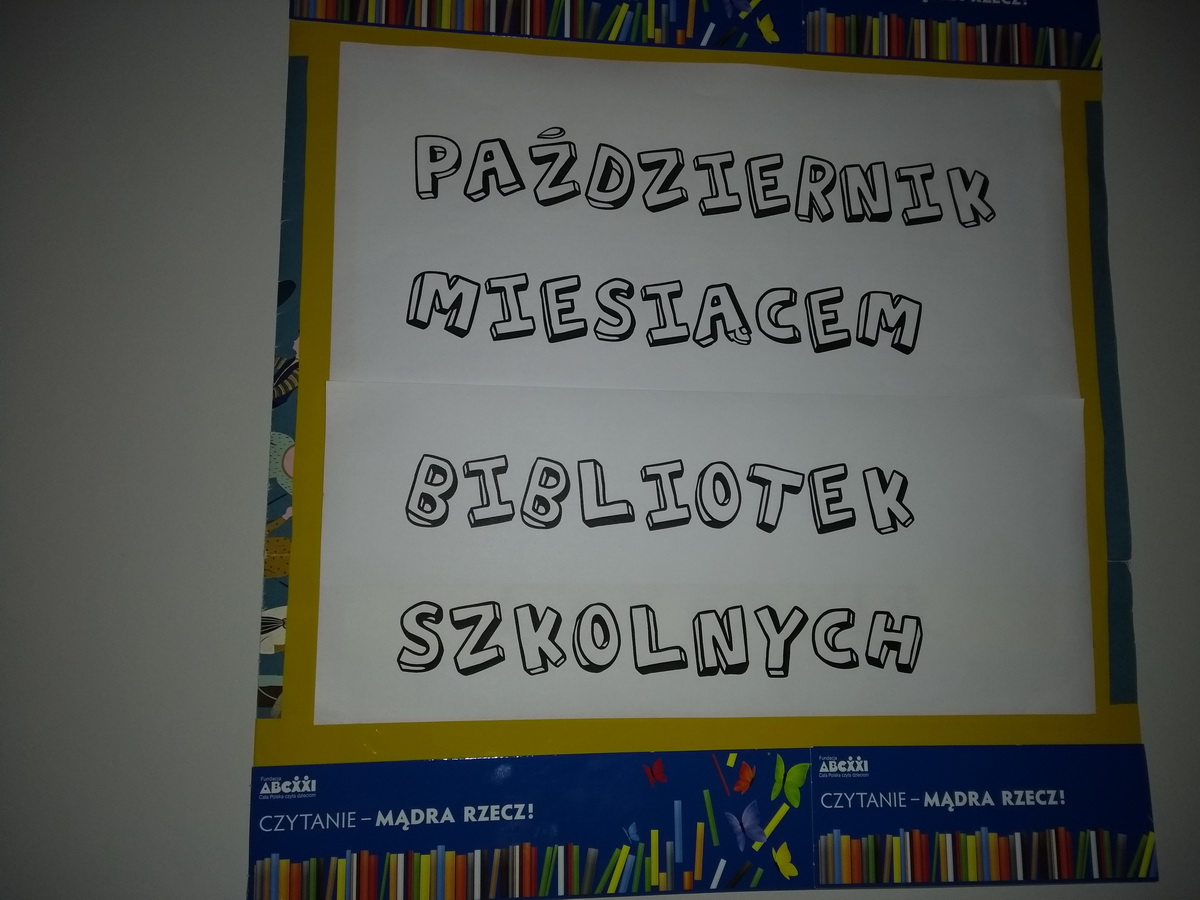 MĄDRA RZECZ!
PAŹDZIERNIK
MIESIĄCEM
BIBLIOTEK
SZKOLNYCH
Fundacja
ABCXXI
Cała Polska czyta dzieciom
CZYTANIE – MĄDRA RZECZ!
Fundacja
ABCXXI
Cała Polska czyta dzieciom
CZYTANIE – MĄDRA RZECZ!